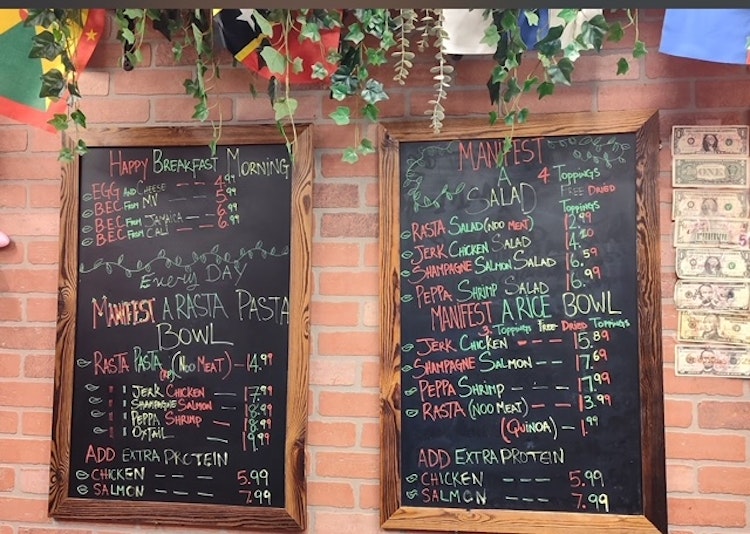 HAPPY BREAKFAST MORNING
EGG AND CHEESE - - 4.99
B.E.C FROM NY - - 5.99
B.E.C FROM JAMAICA - - 6.99
B.E.C FROM CALI - - 6.99
Every DAY
MANIFEST A RASTA PASTA
BOWL
RASTA PASTA (NOO MEAT) - 14.99
" " JERK CHICKEN - - 17.99
" " SHAMPAGNE SALMON - - 18.99
" " PEPPA SHRIMP - - 18.99
" " OXTAIL - - - 19.99
ADD EXTRA PROTEIN
CHICKEN - - - 5.99
SALMON - - - 7.99
MANIFEST
A
SALAD
4 TOPPINGS
FREE DRIED
TOPPINGS
RASTA SALAD (NOO MEAT) 12.99
JERK CHICKEN SALAD
SHAMPAGNE SALMON SALAD 16.59
PEPPA SHRIMP SALAD 16.99
MANIFEST A RICE BOWL
3 TOPPINGS FREE DRIED TOPPINGS
JERK CHICKEN - - - 15.89
SHAMPAGNE SALMON - - 17.69
PEPPA SHRIMP - - - 17.99
RASTA (NOO MEAT) - - 13.99
(QUINOA) - 1.99
ADD EXTRA PROTEIN
CHICKEN - - - 5.99
SALMON - - - 7.99